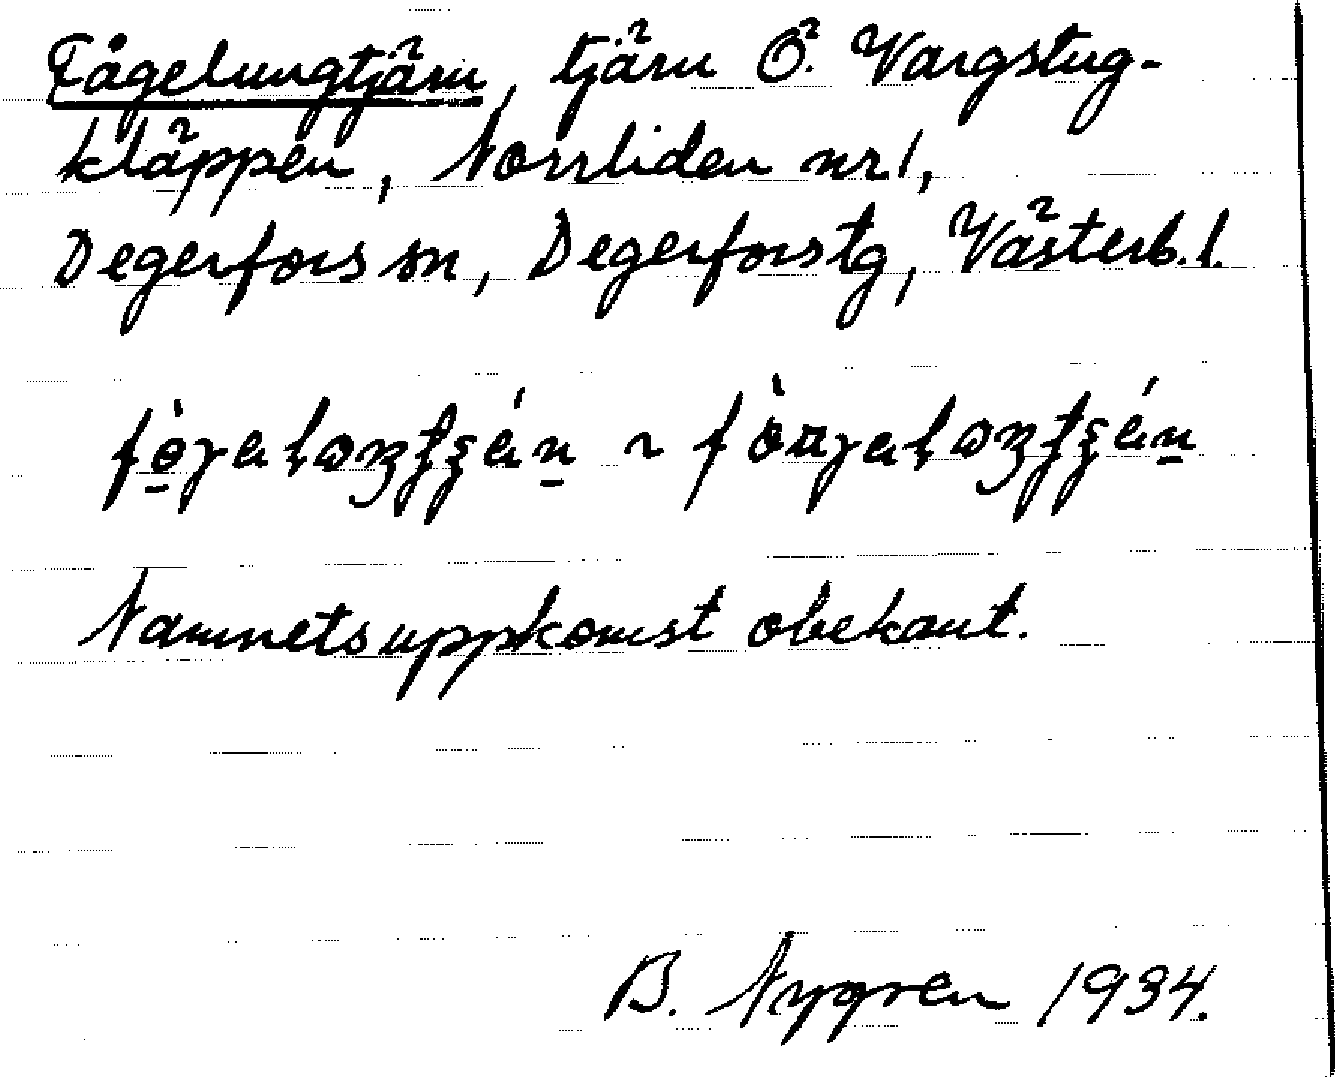 Fågelungtjärn, tjärn Ö. Vargstug-
kläppen, Norrliden nr 1,
Degerfors sn, Degerfors tg, Västerb. l.
Namnets uppkomst obekant.
B. Nygren 1934.